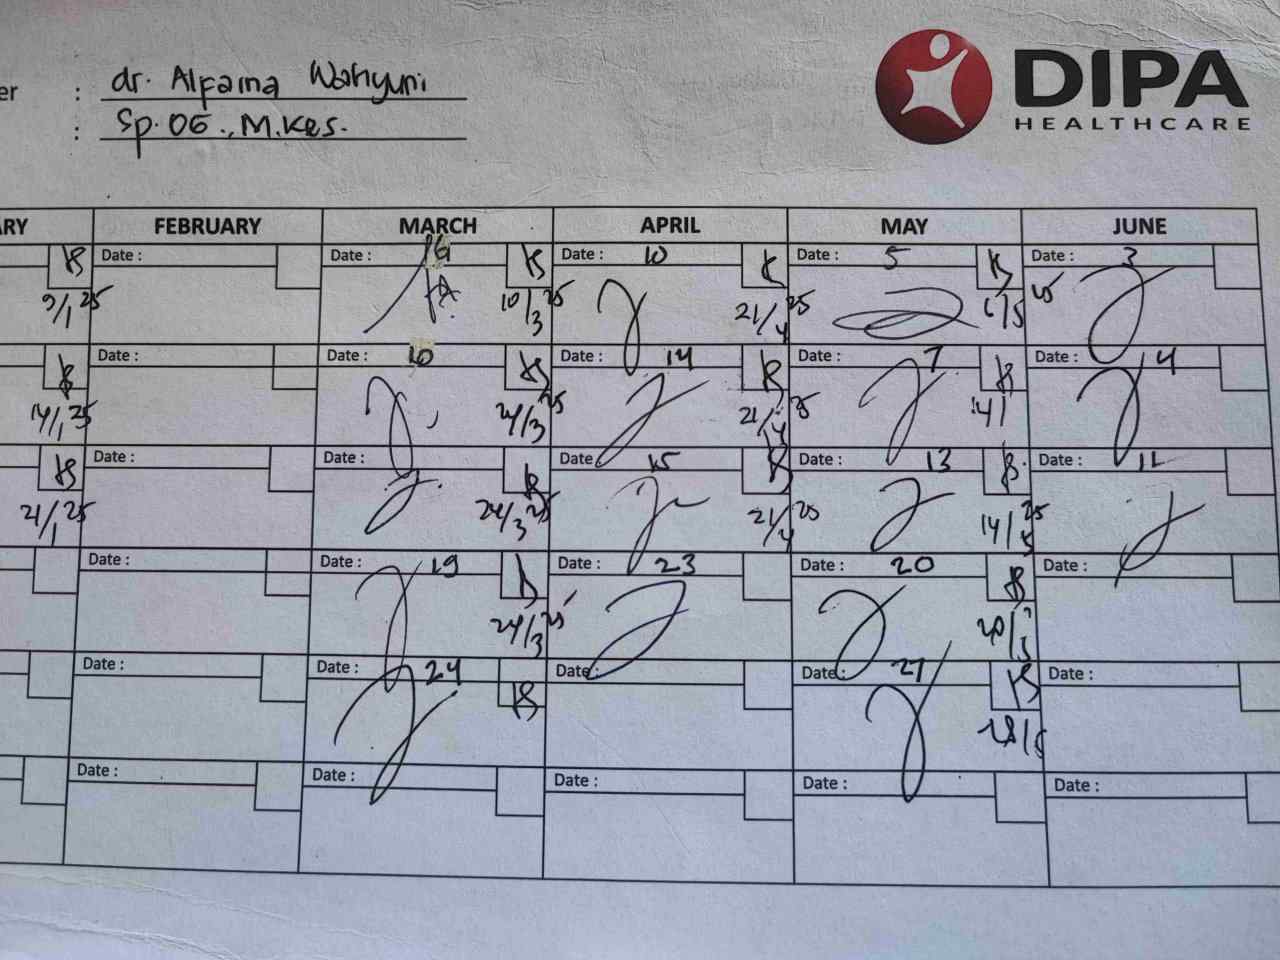 DIPA
HEALTHCARE
er : dr. Alfaina Wahyuni
: Sp. OG., M.Kes.
ARY FEBRUARY MARCH APRIL MAY JUNE
Date : Date : Date : 10 Date : 5 Date : 3
9/1 25 10/3 25 21/4 25 6/5
Date : Date : 10 Date : 14 Date : 7 Date : 4
14/1 25 24/3 25 21/4 25 14/
Date : Date : Date : 15 Date : 13 Date : 11
21/1 25 24/3 25 21/4 25 14/5 25
Date : Date : 19 Date : 23 Date : 20 Date :
24/3 25 20/5
Date : Date : 24 Date : Date : 27 Date :
28/5
Date : Date : Date : Date : Date :